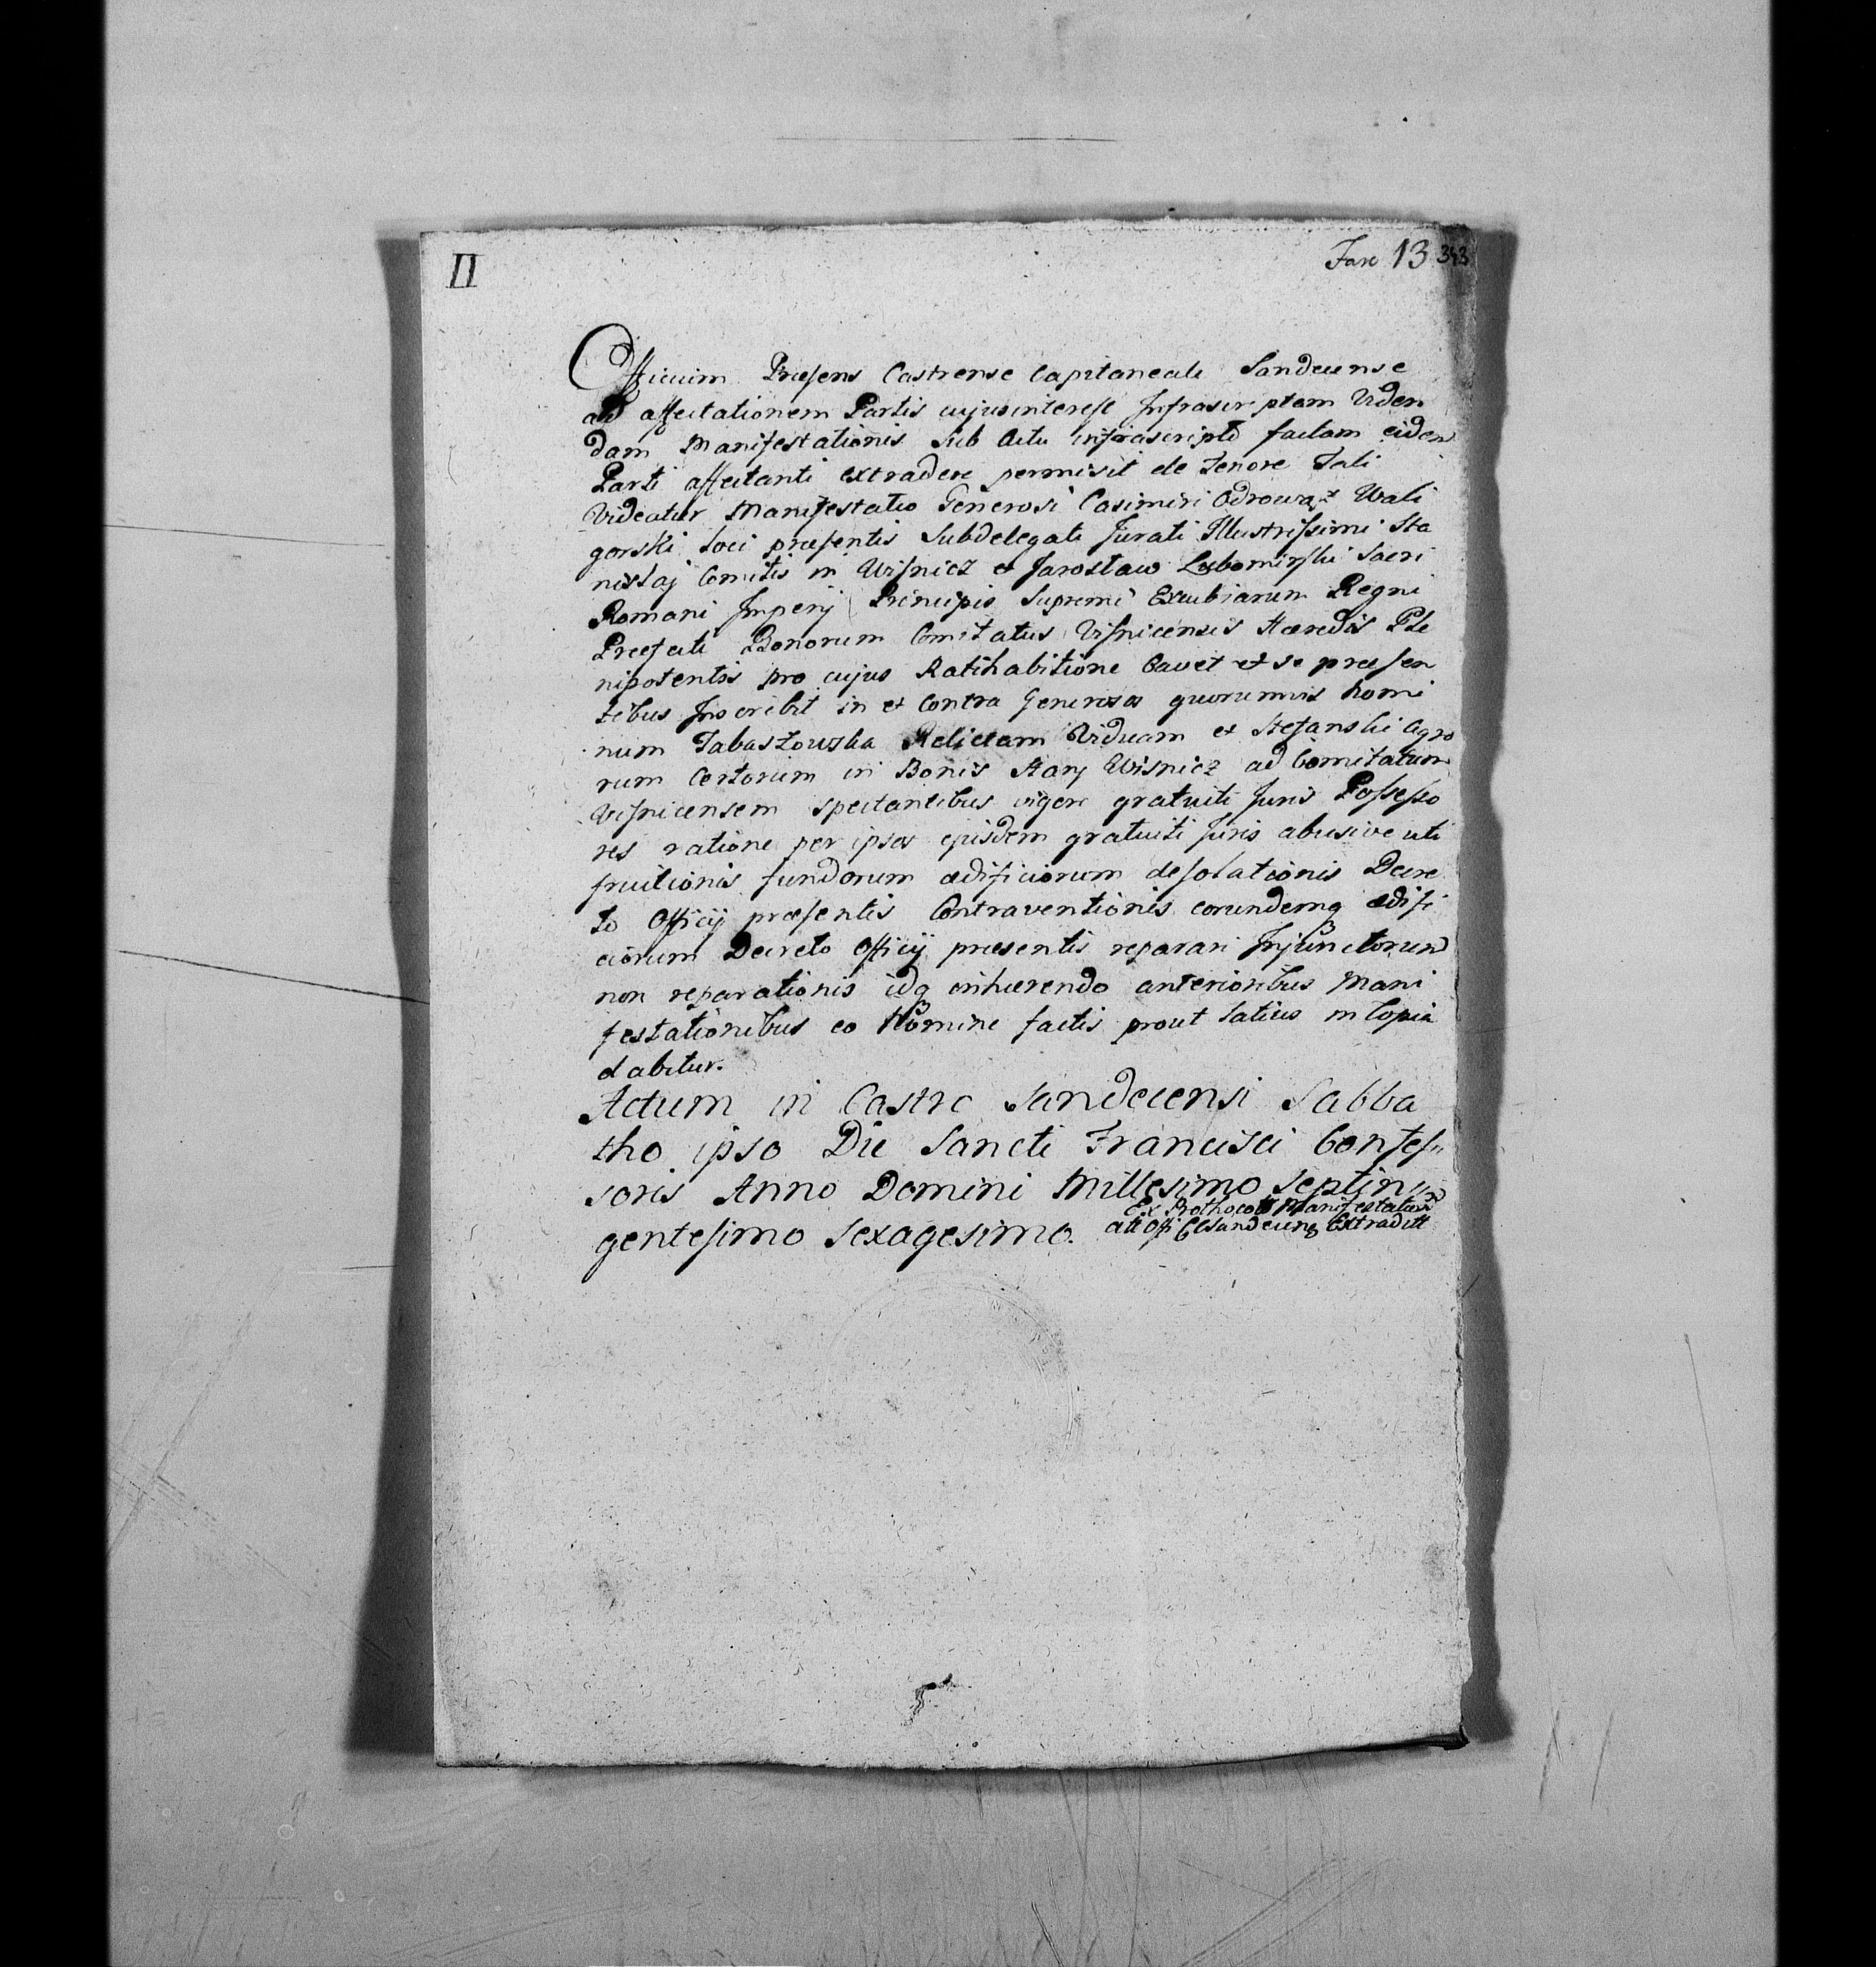 II
Fasc 13 343
Officium Præsens Castrense Capitaneale Sandecense
ad affectationem Partis cujus interest Infrascriptam Viden
dam Manifestationis sub Actu infrascripto factam eidem
Parti affectanti extradere permisit de Tenore Tali
Videatur Manifestatio Generosi Casimiri Odrowąż Wali
gorski Loci præsentis Subdelegati Jurati Illustrissimi Sta
nislaj Comitis in Wisnicz et Jarosław Lubomirski Sacri
Romani Imperij Principis Supremi Excubiarum Regni
Præfecti Bonorum Comitatus Visnicensis Hæredis Ple
nipotentis pro cujus Ratihabitione Cavet et se præsen
tibus Inscribit in et Contra Generosos quorumvis Nomi
num Tabaszowska Relictam Viduam et Stefanski Agro
rum Certorum in Bonis Stary Wisnicz ad Comitatum
Visnicensem spectantibus vigore gratuiti Juris Possesso
res ratione per ipsos ejusdem gratuiti Juris abusive uti
fruitionis fundorum ædificiorum desolationis Decre
to Officij præsentis Contraventionis eorundemq ædifi
ciorum Decreto Officij præsentis reparari Injunctorum
non reparationis idq inhærendo anterioribus Mani
festationibus eo Nomine factis prout latius in Copia
dabitur.
Actum in Castro Sandecensi Sabba
tho ipso Die Sancti Francisci Confes„
soris Anno Domini Millesimo Septin„
gentesimo Sexagesimo.
Ex Prothocollo Manifestationu
Extradit